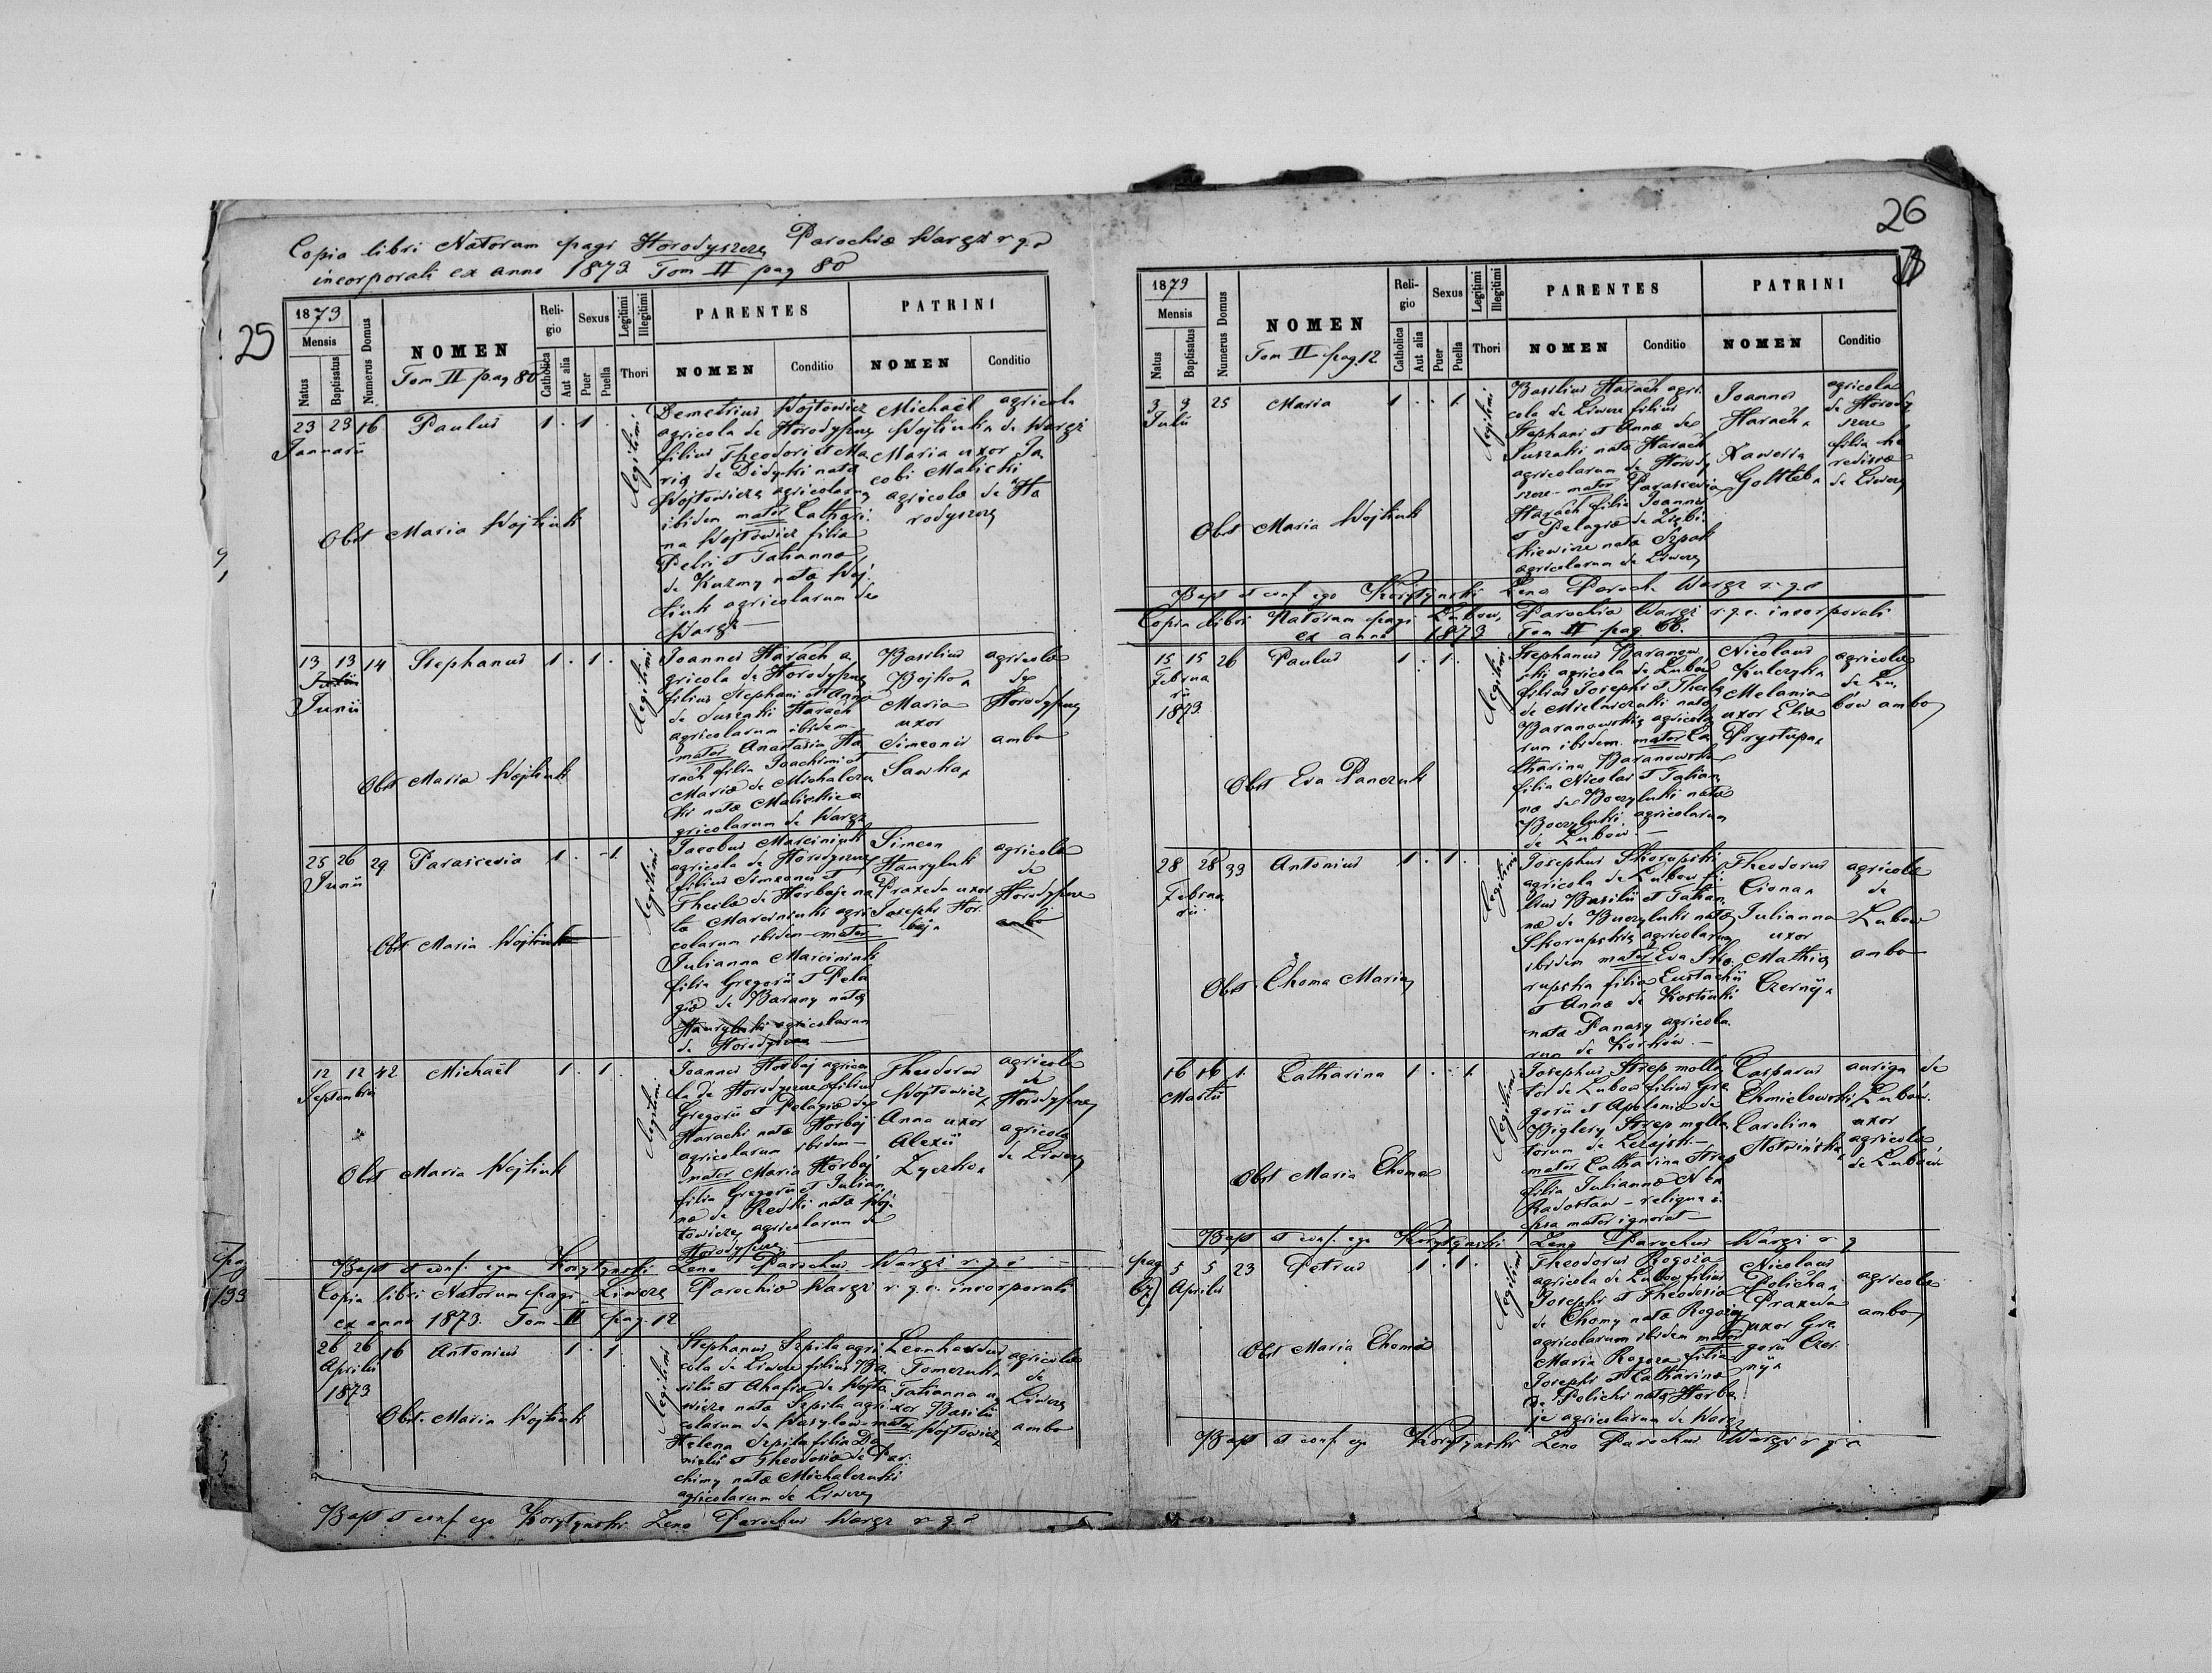 Copia libri Natorum pagi Horodyszcze Parochiæ Waręż r. g. c.
incorporati ex anno 1873 Tom II pag 80
25
1873
Mensis
Natus
Baptisatus
Numerus Domus
NOMEN
Tom II pag 80
Religio
Catholica
Aut alia
Sexus
Puer
Puella
Legitimi
Illegitimi
Thori
PARENTES
NOMEN
Conditio
PATRINI
NOMEN
Conditio
23 23 16 Paulus 1 . 1 .
Januarii
Legitimi
Demetrius Wojtowicz
agricola de Horodyszcze
filius Theodori et Ma
riæ de Didyki nata
Wojtowicze agricolarum
ibidem mater Cathari
na Wojtowicz filia
Petri et Tatianna
de Kuzmy nata Woj
tiuk agricolarum de
Waręż
Michaël agricola
Wojtiuk de Waręż
Maria uxor Ja
cobi Malicki
agricola de Ho
rodyszcze
Obst Maria Wojtiuk
13 13 14 Stephanus 1 . 1 .
Junii
Legitimi
Joannes Harach a
gricola de Horodyszcze
filius Stephani et Anna
de Suszaki Harach
agricolarum ibidem
mater Anastasia Ha
rach filia Joachimi et
Mariæ de Michalczu
ki nata Malickie a
gricolarum de Waręż
Basilius
Bojko
Maria
uxor
Simeonis
Sawka
agricola
de
Horodyszcze
ambo
Obst Maria Wojtiuk
25 26 29 Parascevia 1 . - 1
Junii
Legitimi
Jacobus Marciniuk
agricola de Horodyszcze
filius Simeonis et
Theclæ de Horbaje na
ta Marciniuki agri
colarum ibidem mater
Julianna Marciniuk
filia Gregorii et Pela
giæ de Barany nata
Hauryluki agricolarum
de Horodyszcze
Simeon
Hauryluk
Praxeda uxor
Josephi Hor
baj
agricola
de
Horodyszcze
ambo
Obst Maria Wojtiuk
12 12 42 Michaël 1 . 1 .
Septembris
Legitimi
Joannes Horbaj agrico
la de Horodyszcze filius
Gregorii et Pelagiæ de
Harachi nata Horbaj
agricolarum ibidem
mater Maria Horbaj
filia Gregorii et Julian
na de Redki nata Woj
towicze agricolarum de
Horodyszcze
Theodorus
Wojtowicz
Anna uxor
Alexii
Zyczko
agricola
de
Horodyszcze
agricola
de Liwcze
Obst Maria Wojtiuk
Bapt et conf. ego Korytynski Zeno Parochus Waręż r. g. c.
Copia libri Natorum pagi Liwcze Parochiæ Waręż r. g. c. incorporati
ex anno 1873. Tom II pag. 12
26 26 16 Antonius 1 . 1
Aprilis
1873
Legitimi
Stephanus Szpila agri
cola de Liwcze filius Ba
silii et Ahafia de Wojto
wicze nata Szpila agri
colarum de Wasylow mater
Helena Szpila filia Da
nielis et Theodosiæ de Par
chimy nata Michalczuki
agricolarum de Liwcze
Leonhardus
Tomczuk
Tatianna u
xor Basilii
Wojtowicz
agricola
de
Liwcze
ambo
Obst. Maria Wojtiuk
Bapt et conf ego Korytynski Zeno Parochus Waręż r. g. c.
26
1873
Mensis
Natus
Baptisatus
Numerus Domus
NOMEN
Tom II pag. 12
Religio
Catholica
Aut alia
Sexus
Puer
Puella
Legitimi
Illegitimi
Thori
PARENTES
NOMEN
Conditio
PATRINI
NOMEN
Conditio
3 9 25 Maria 1 . . 1
Julii
Legitimi
Basilius Harach agri
cola de Liwcze filius
Stephani et Annæ de
Suszaki nata Harach
agricolarum de Horody
szcze mater Parascevia
Harach filia Joannis
et Pelagiæ de
nata Szpak
agricolarum de Liwcze
Joannes
Harach
Xaweria
Gottleb
agricola
de Horody
szcze
filia
de Liwcze
Obst Maria Wojtiuk
Bapt et conf ego Korytynski Zeno Paroch. Waręż r. g. c
Copia libri Natorum pagi Lubow, Parochia Waręż r. g. c. incorporati
ex anno 1873 Tom II pag 66.
15 15 26 Paulus 1 . 1 .
Februa
rii
1873.
Legitimi
Stephanus Baranow
ski agricola de Lubów
filius Josephi et Theclæ
de Mielniczuki nata
Baranowskie agricola
rum ibidem. mater Ca
tharina Baranowska
filia Nicolai et Tatian
næ de Boczyluki nata
Boczyluki agricolarum
de Lubow
Nicolaus
Kulczyk
Melania
uxor Eliæ
Prystupa
agricola
de Lu
bów ambo
Obst Eva Panczuk
28 28 33 Antonius 1 . 1 .
Februa
rii
Legitimi
Josephus Skorupski
agricola de Lubow fi
lius Basilii et Tatian
næ de Buczyluki nata
Skorupskie agricolarum
ibidem mater Eva Sko
rupska filia Eustachii
et Annæ de Kostiuki
nata Panasy agricola
rum de Korków
Theodorus
Ciona
Julianna
uxor
Mathiæ
Czernij
agricola
de
Lubow
ambo
Obst Choma Maria
16 16 1. Catharina 1 . . 1
Martii
Legitimi
Josephus Strep molli
tor de Lubow filius Gre
gorii et Apoloniæ de
Biglery Strep molli
torum de Leżajsk
mater Catharina Strep
filia Juliannæ
Radostaw - reliqua i
psa mater ignorat
Casparus
Chmielowski
Carolina
Hotwińska
auriga de
Lubów.
uxor
agricola
de Lubów
Obst Maria Choma
Bapt et conf. ego Korytynski Zeno Parochus Waręż r. g
pag
67
5 5 23 Petrus 1 . 1 .
Aprilis
Legitimi
Theodorus Rogoza
agricola de Lubow filius
Josephi et Theodosia
de Chomy nata Rogozy
agricolarum ibidem mater
Maria Rogoza filia
Josephi et Catharinæ
de Polichi nata Horba
je agricolarum de Waręż
Nicolaus
Policha
Praxeda
uxor Gre
gorii Czer
nij
agricola
ambo
Obst Maria Choma
Bapt et conf. ego Korytynski Zeno Parochus Waręż r. g. c